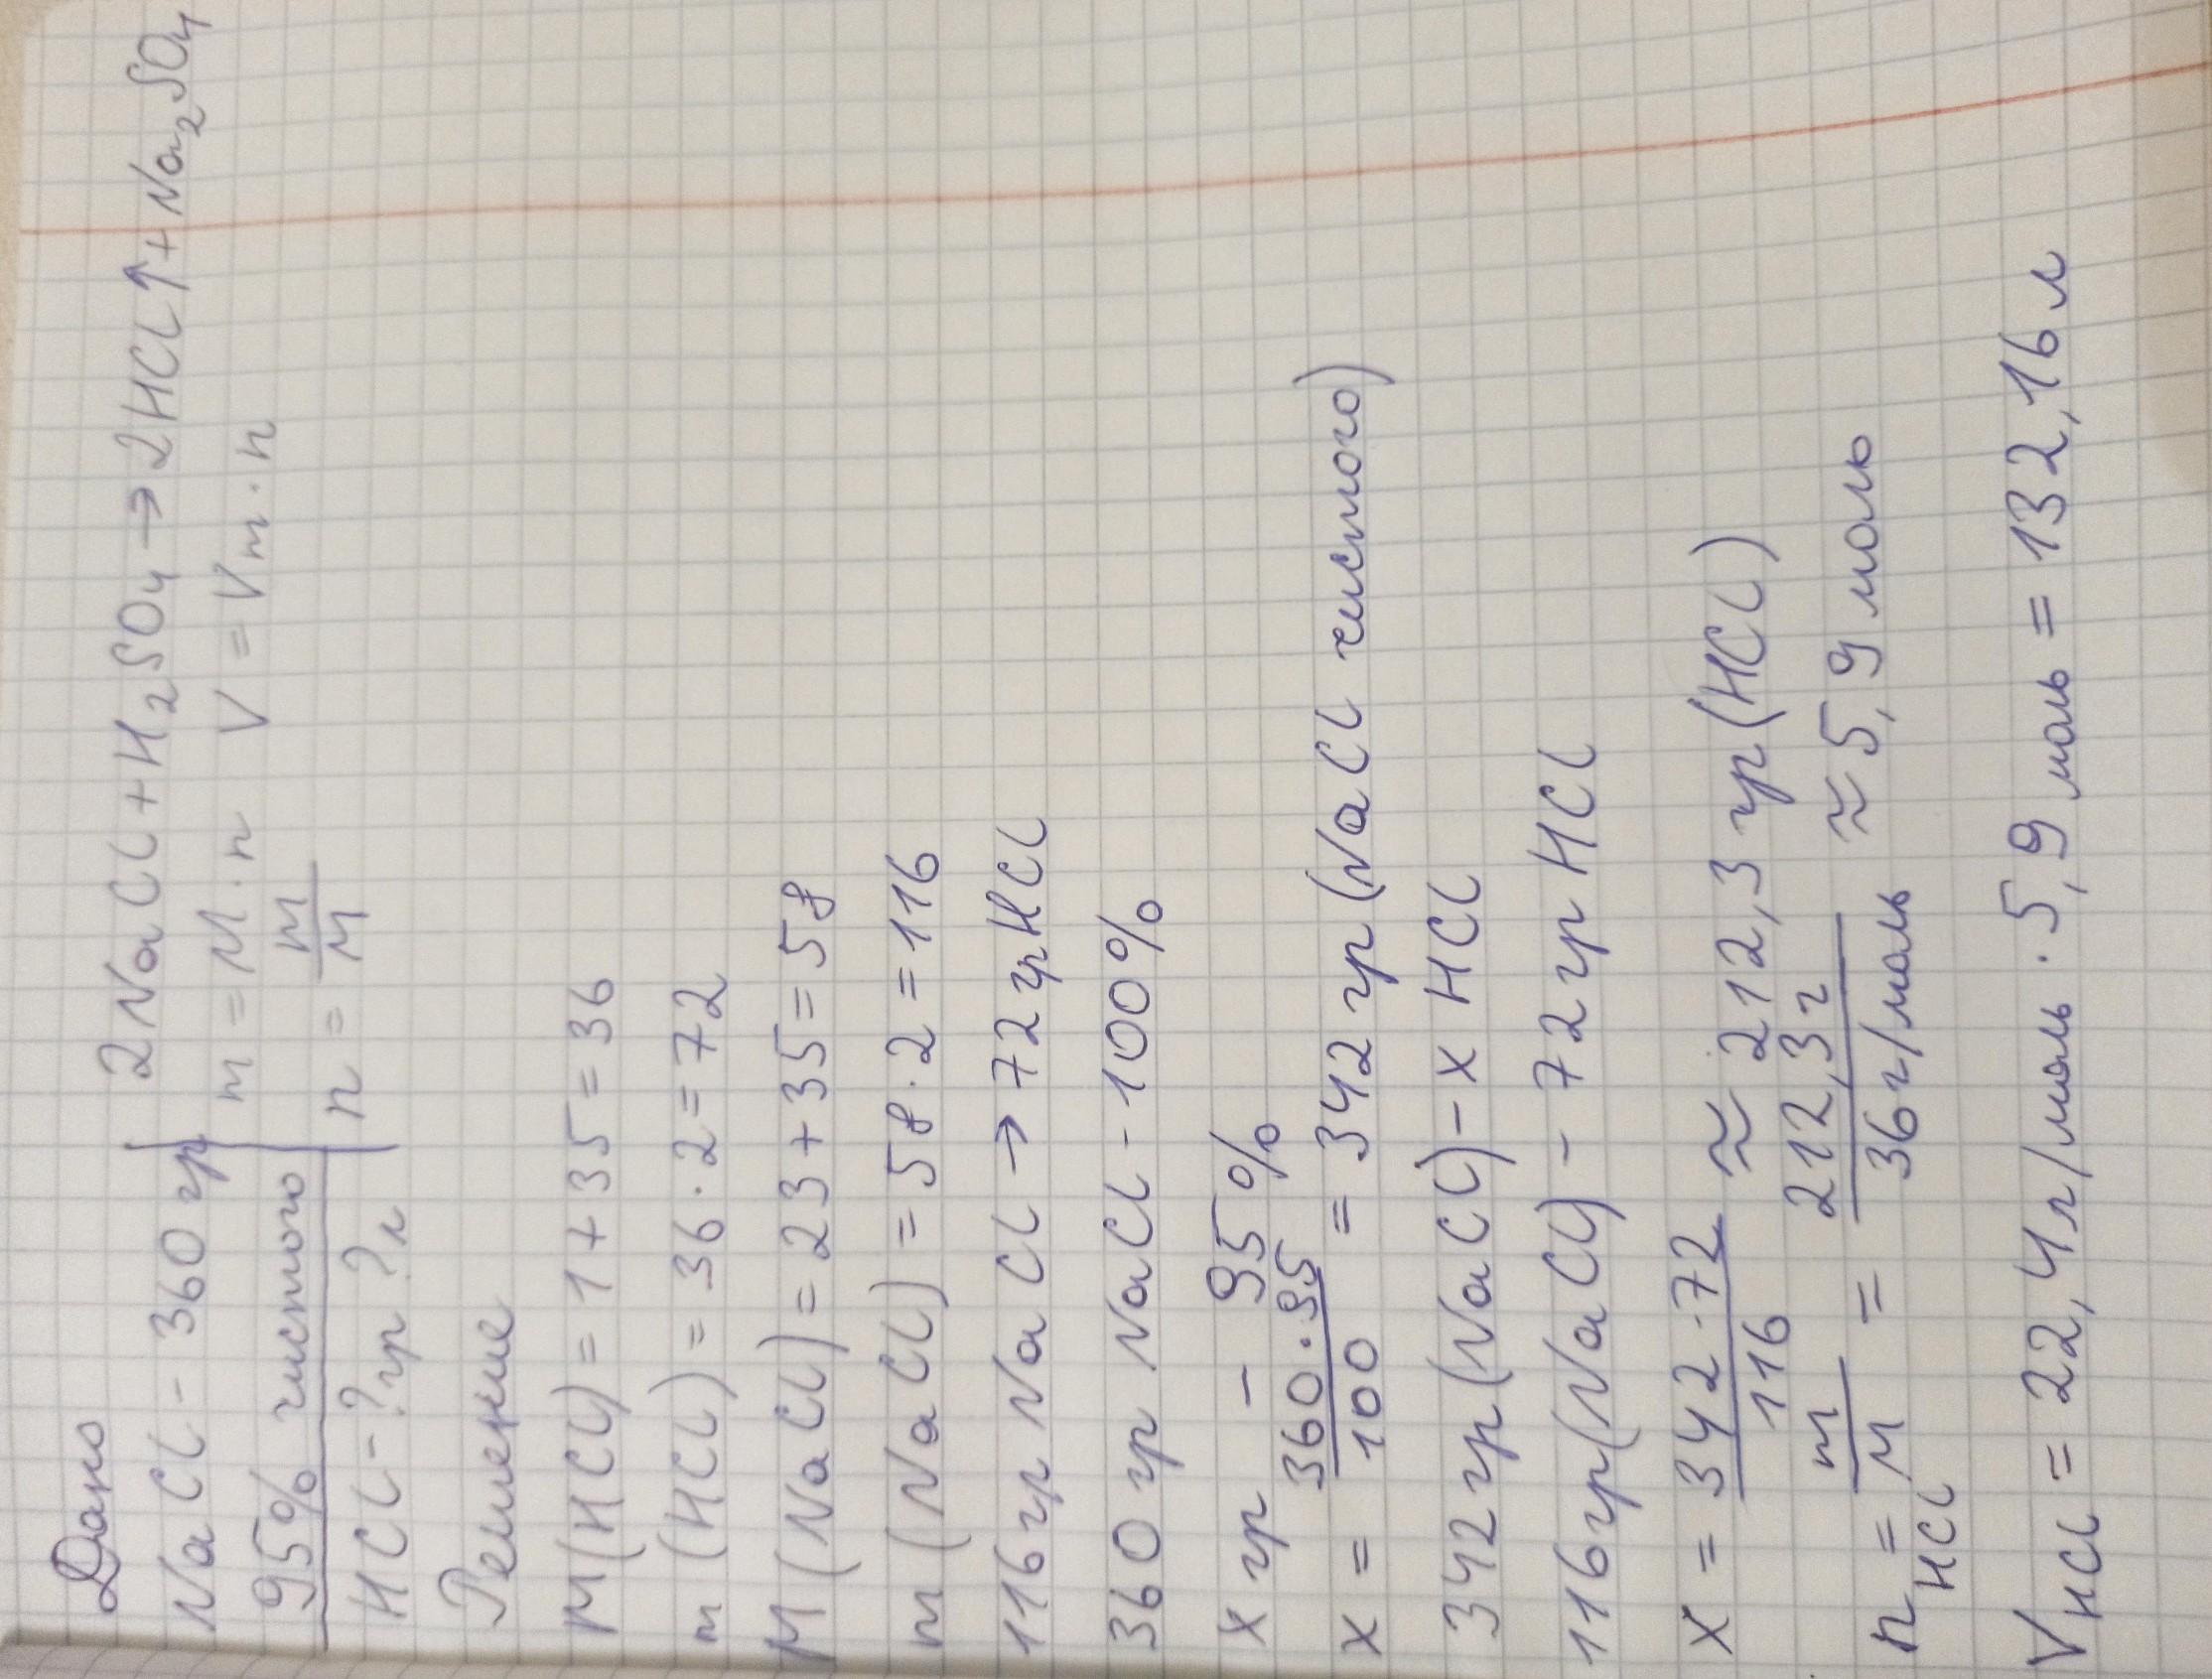 Дано
NaCl - 360 гр
95% чистого
HCl - ? гр ? л
2NaCl + H₂SO₄ → 2HCl↑ + Na₂SO₄
m = M · n V = Vm · n
n = m/M
Решение
M(HCl) = 1 + 35 = 36
m(HCl) = 36 · 2 = 72
M(NaCl) = 23 + 35 = 58
m(NaCl) = 58 · 2 = 116
116 гр NaCl → 72 гр HCl
360 гр NaCl - 100%
x гр - 95%
x = 360 · 95 / 100 = 342 гр (NaCl чистого)
342 гр (NaCl) - x HCl
116 гр (NaCl) - 72 гр HCl
x = 342 · 72 / 116 ≈ 212,3 гр (HCl)
n HCl = m/M = 212,3 г / 36 г/моль ≈ 5,9 моль
V HCl = 22,4 г/моль · 5,9 моль = 132,16 л